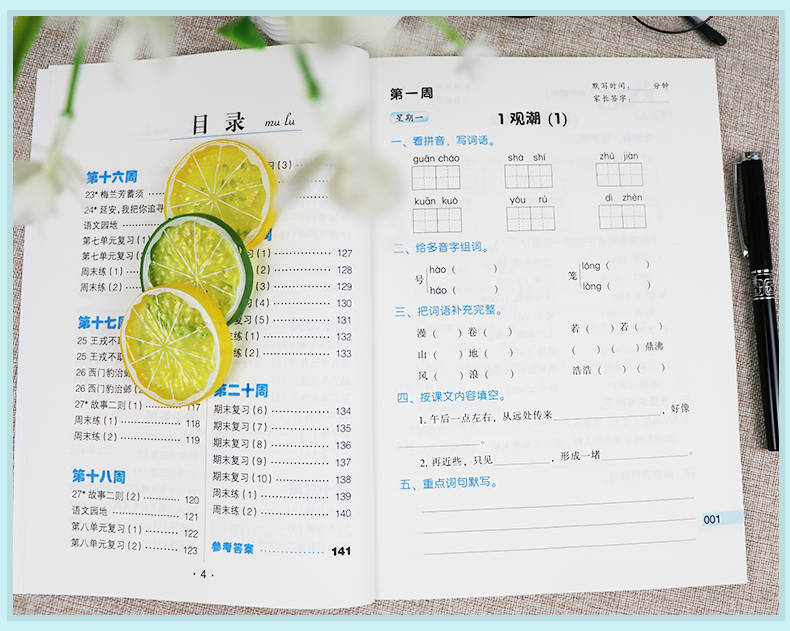 目录 mu lu
第十六周
23* 梅兰芳蓄须
24* 延安,我把你追寻
语文园地
第七单元复习(1)
第七单元复
周末练(1)
周末练(2)
第十七周
25 王戎不取
25 王戎不
26 西门豹治邺
26 西门豹治邺
27* 故事二则(1) 117
周末练(1) 118
周末练(2) 119
第十八周
27* 故事二则(2) 120
语文园地 121
第八单元复习(1) 122
第八单元复习(2) 123
习(3)
周
(1) 127
(2) 128
(3) 129
(4) 130
(5) 131
练(1) 132
(2) 133
第二十周
期末复习(6) 134
期末复习(7) 135
期末复习(8) 136
期末复习(9) 137
期末复习(10) 138
周末练(1) 139
周末练(2) 140
参考答案 141
·4·
第一周
默写时间: 分钟
家长签字:
星期一
1 观潮(1)
一、看拼音,写词语。
guān cháo shà shí zhú jiàn
kuān kuò yóu rú dì zhèn
二、给多音字组词。
号 hào( ) háo( )
笼 lóng( ) lǒng( )
三、把词语补充完整。
漫( )卷( ) 若( )若( )
山( )地( ) ( )( )鼎沸
风( )浪( ) 浩浩( )( )
四、按课文内容填空。
1. 午后一点左右,从远处传来 ,好像
。
2. 再近些,只见 ,形成一堵 。
五、重点词句默写。
001